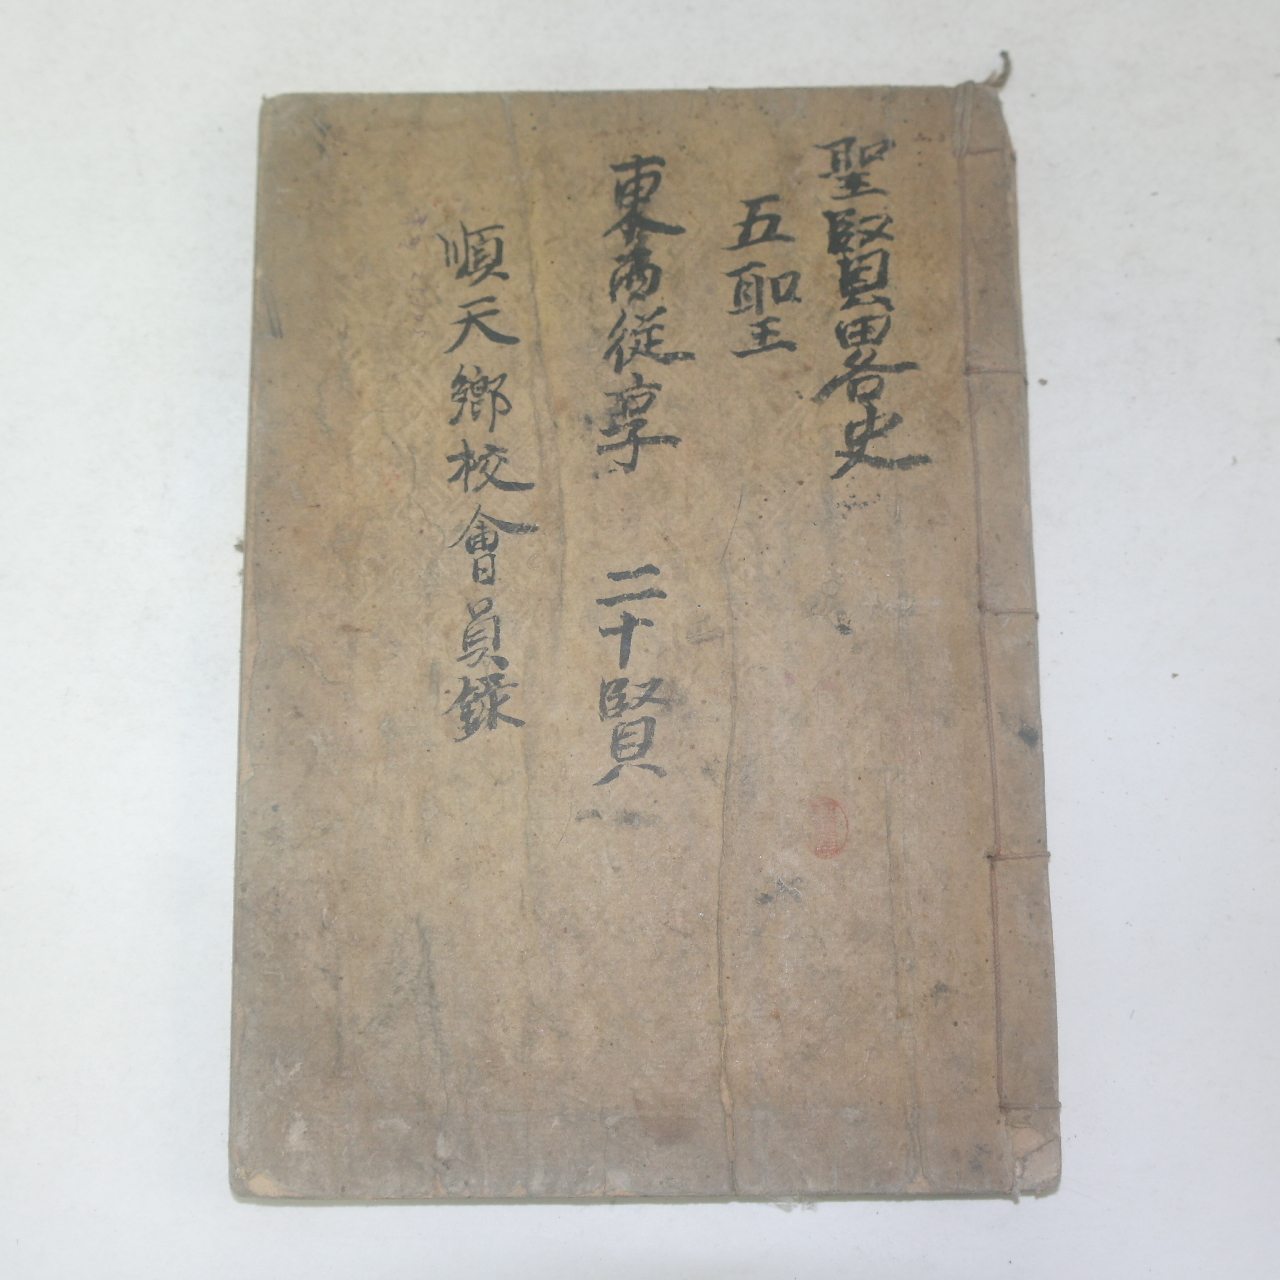 聖賢畧史
五聖
東西從享 二十賢
順天鄕校會員錄